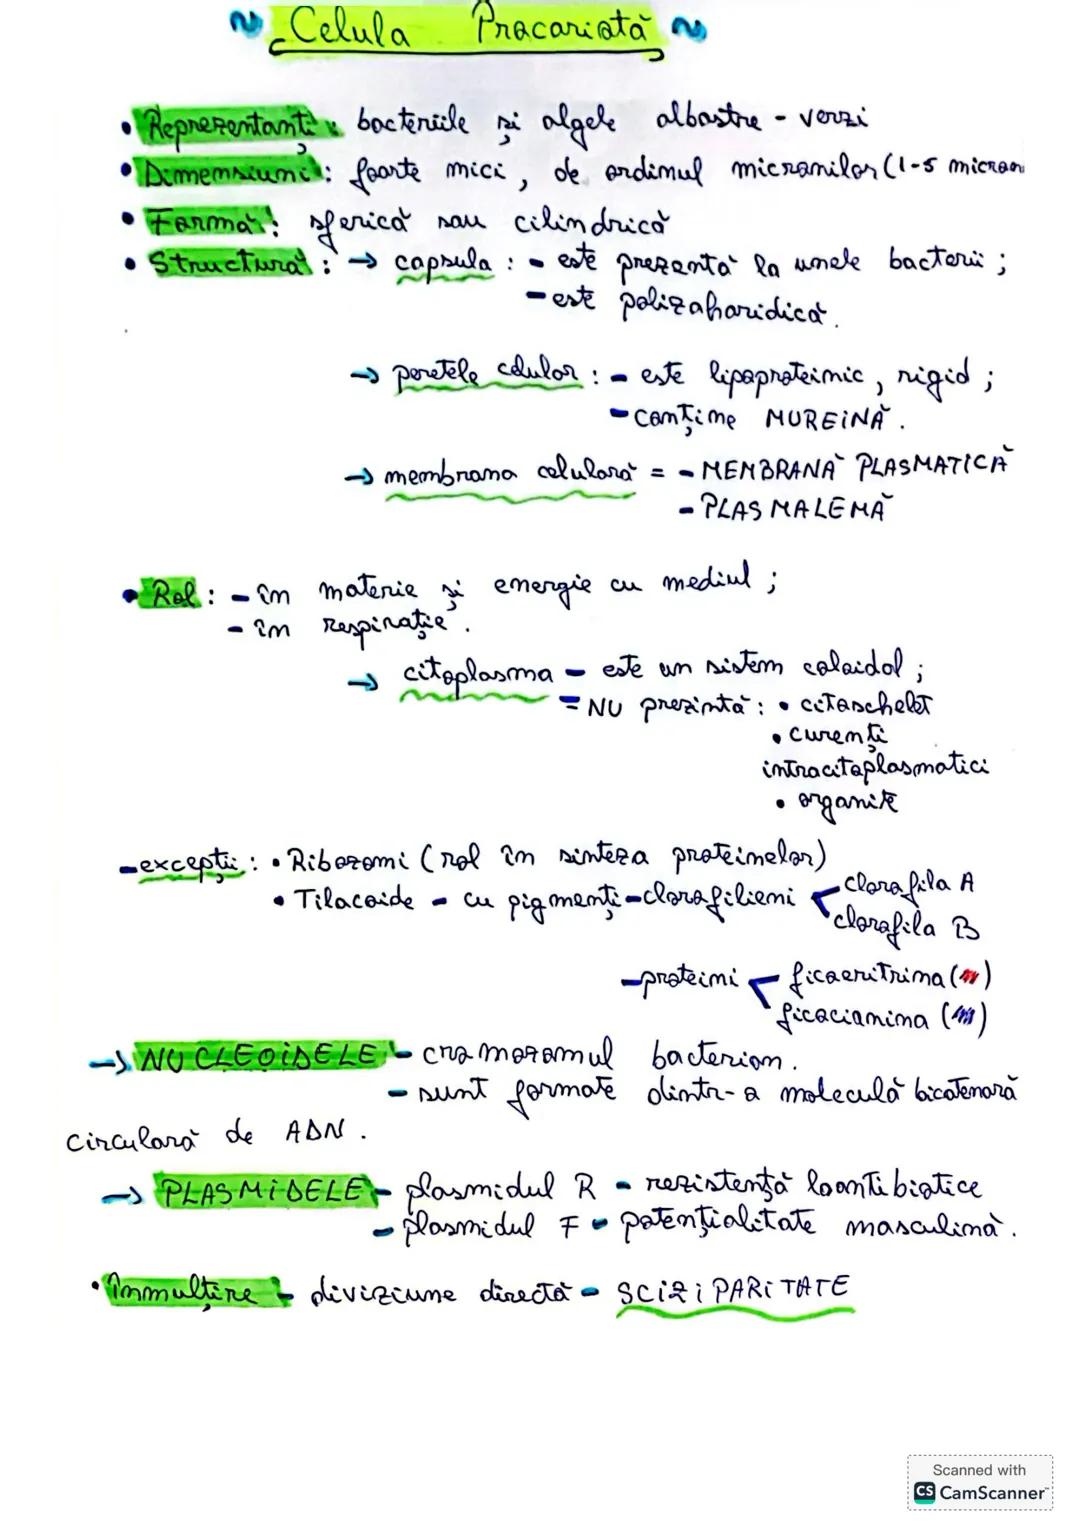 ~ Celula Procariotă ~
• Reprezentanți: bacteriile și algele albastre - verzi
• Dimensiuni: foarte mici, de ordimul micronilor (1-5 micron
• Formă: sferică sau cilindrică
• Structură: → capsula : - este prezentă la unele bacterii ;
- este polizaharidică.
→ peretele celular : - este lipoproteinic, rigid ;
- conține MUREINĂ.
→ membrana celulară = - MEMBRANĂ PLASMATICĂ
- PLASMALEMĂ
• Rol : - în materie și energie cu mediul ;
- în respirație.
→ citoplasma - este un sistem coloidal ;
= NU prezintă : • citoschelet
• curenți
intracitoplasmatici
• organite
- excepții : • Ribozomi (rol în sinteza proteinelor)
• Tilacoide - cu pigmenți - clorofilieni < clorofila A
clorofila B
- proteini < ficoeritrina ( )
ficocianina ( )
→ NUCLEOIDELE - cromozomul bacterian.
- sunt formate dintr-o moleculă bicatenară
circulară de ADN.
→ PLASMIDELE - plasmidul R - rezistență la antibiotice
- plasmidul F - potențialitate masculină.
• Înmulțire - diviziune directă - SCIZIPARITATE
Scanned with
CS CamScanner™